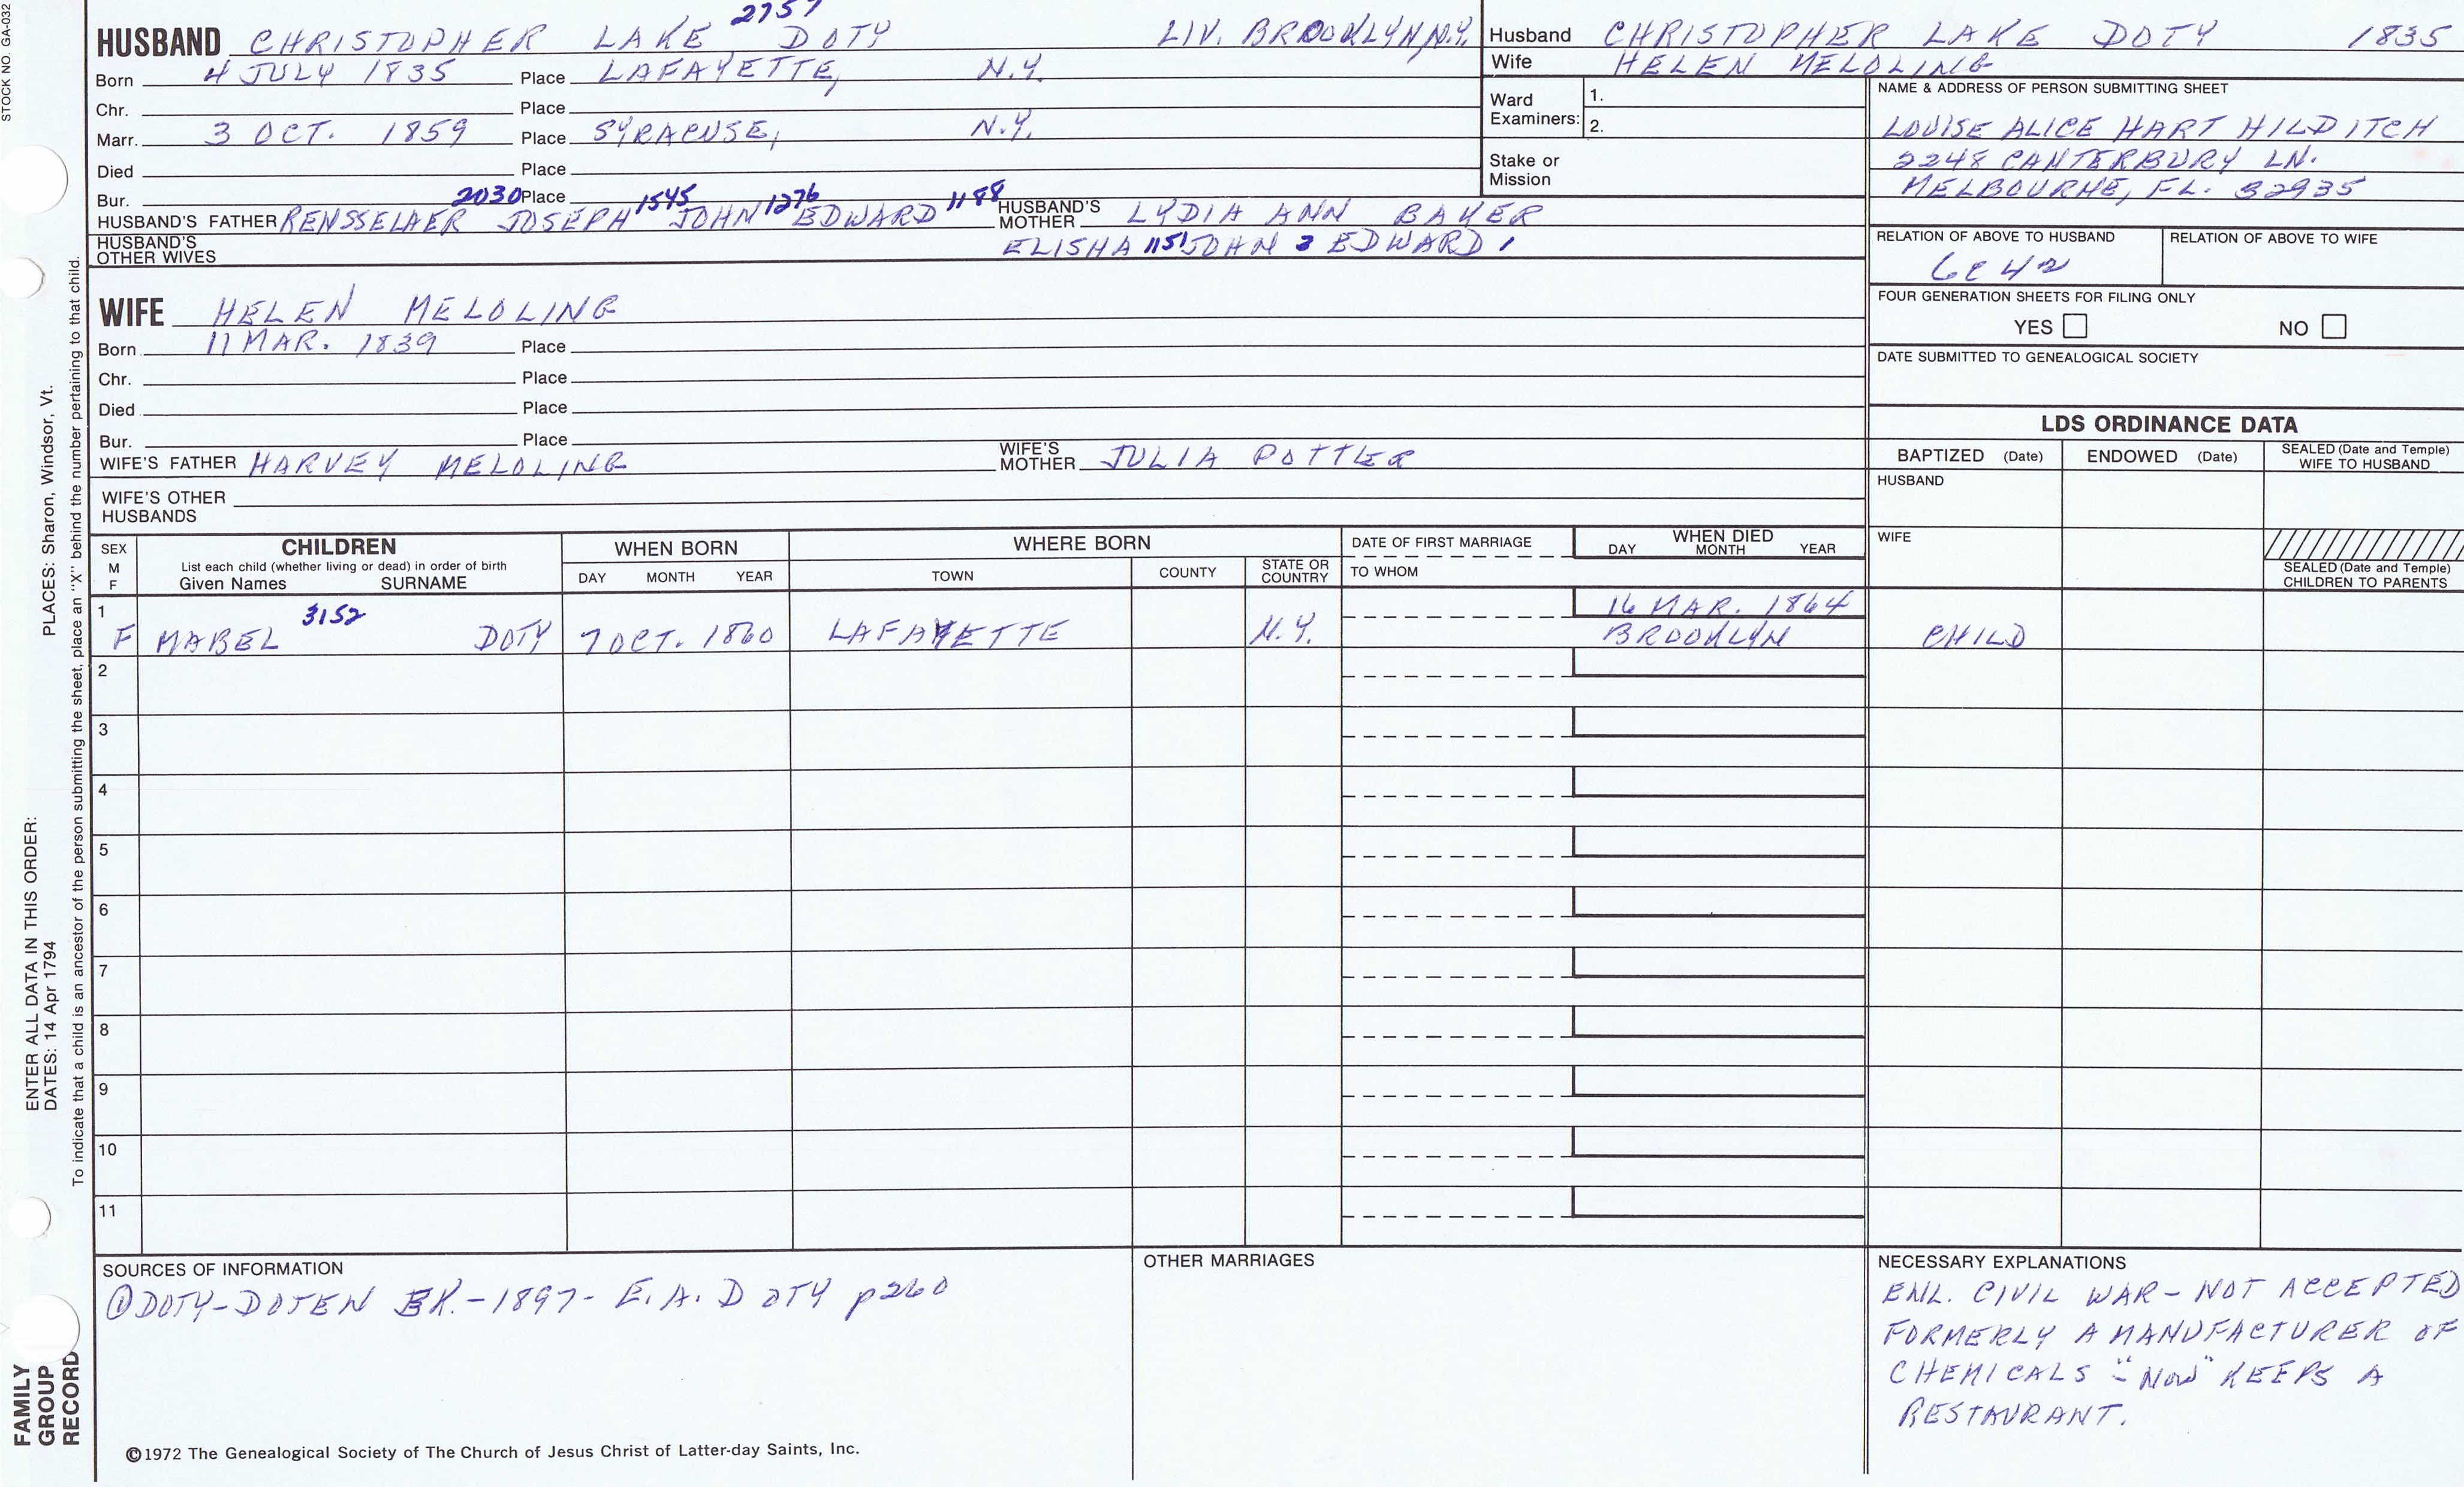 STOCK NO. GA-032
2757
HUSBAND CHRISTOPHER LAKE DOTY LIV. BROOKLYN N.Y.
Born 4 JULY 1835 Place LAFAYETTE, N.Y.
Chr. Place
Marr. 3 OCT. 1859 Place SYRACUSE, N.Y.
Died Place
Bur. Place
2030 1545 1276 1188
HUSBAND'S FATHER RENSSELAER JOSEPH JOHN EDWARD HUSBAND'S MOTHER LYDIA ANN BAKER
HUSBAND'S OTHER WIVES ELISHA 1151 JOHN 3 EDWARD 1
WIFE HELEN MELOLING
Born 11 MAR. 1839 Place
Chr. Place
Died Place
Bur. Place
WIFE'S FATHER HARVEY MELOLING WIFE'S MOTHER JULIA POTTLER
WIFE'S OTHER HUSBANDS
Husband CHRISTOPHER LAKE DOTY 1835
Wife HELEN MELOLING
Ward Examiners: 1.
2.
Stake or Mission
NAME & ADDRESS OF PERSON SUBMITTING SHEET
LOUISE ALICE HART HILDITCH
2248 CANTERBURY LN.
MELBOURNE, FL. 32935
RELATION OF ABOVE TO HUSBAND RELATION OF ABOVE TO WIFE
6C4R
FOUR GENERATION SHEETS FOR FILING ONLY
YES NO
DATE SUBMITTED TO GENEALOGICAL SOCIETY
LDS ORDINANCE DATA
BAPTIZED (Date) ENDOWED (Date) SEALED (Date and Temple) WIFE TO HUSBAND
HUSBAND
WIFE
SEALED (Date and Temple) CHILDREN TO PARENTS
SEX M F
CHILDREN
List each child (whether living or dead) in order of birth
Given Names SURNAME
WHEN BORN
DAY MONTH YEAR
WHERE BORN
TOWN COUNTY STATE OR COUNTRY
DATE OF FIRST MARRIAGE
TO WHOM
WHEN DIED
DAY MONTH YEAR
1 3152 16 MAR. 1864
F MABEL DOTY 7 OCT. 1860 LAFAYETTE N.Y. BROOKLYN CHILD
2
3
4
5
6
7
8
9
10
11
SOURCES OF INFORMATION
① DOTY-DOTEN BK.-1897- E.A. DOTY p260
OTHER MARRIAGES
NECESSARY EXPLANATIONS
ENL. CIVIL WAR - NOT ACCEPTED
FORMERLY A MANUFACTURER OF
CHEMICALS - "NOW" KEEPS A
RESTAURANT.
©1972 The Genealogical Society of The Church of Jesus Christ of Latter-day Saints, Inc.
FAMILY
GROUP
RECORD
ENTER ALL DATA IN THIS ORDER:
DATES: 14 Apr 1794 PLACES: Sharon, Windsor, Vt.
To indicate that a child is an ancestor of the person submitting the sheet, place an "X" behind the number pertaining to that child.